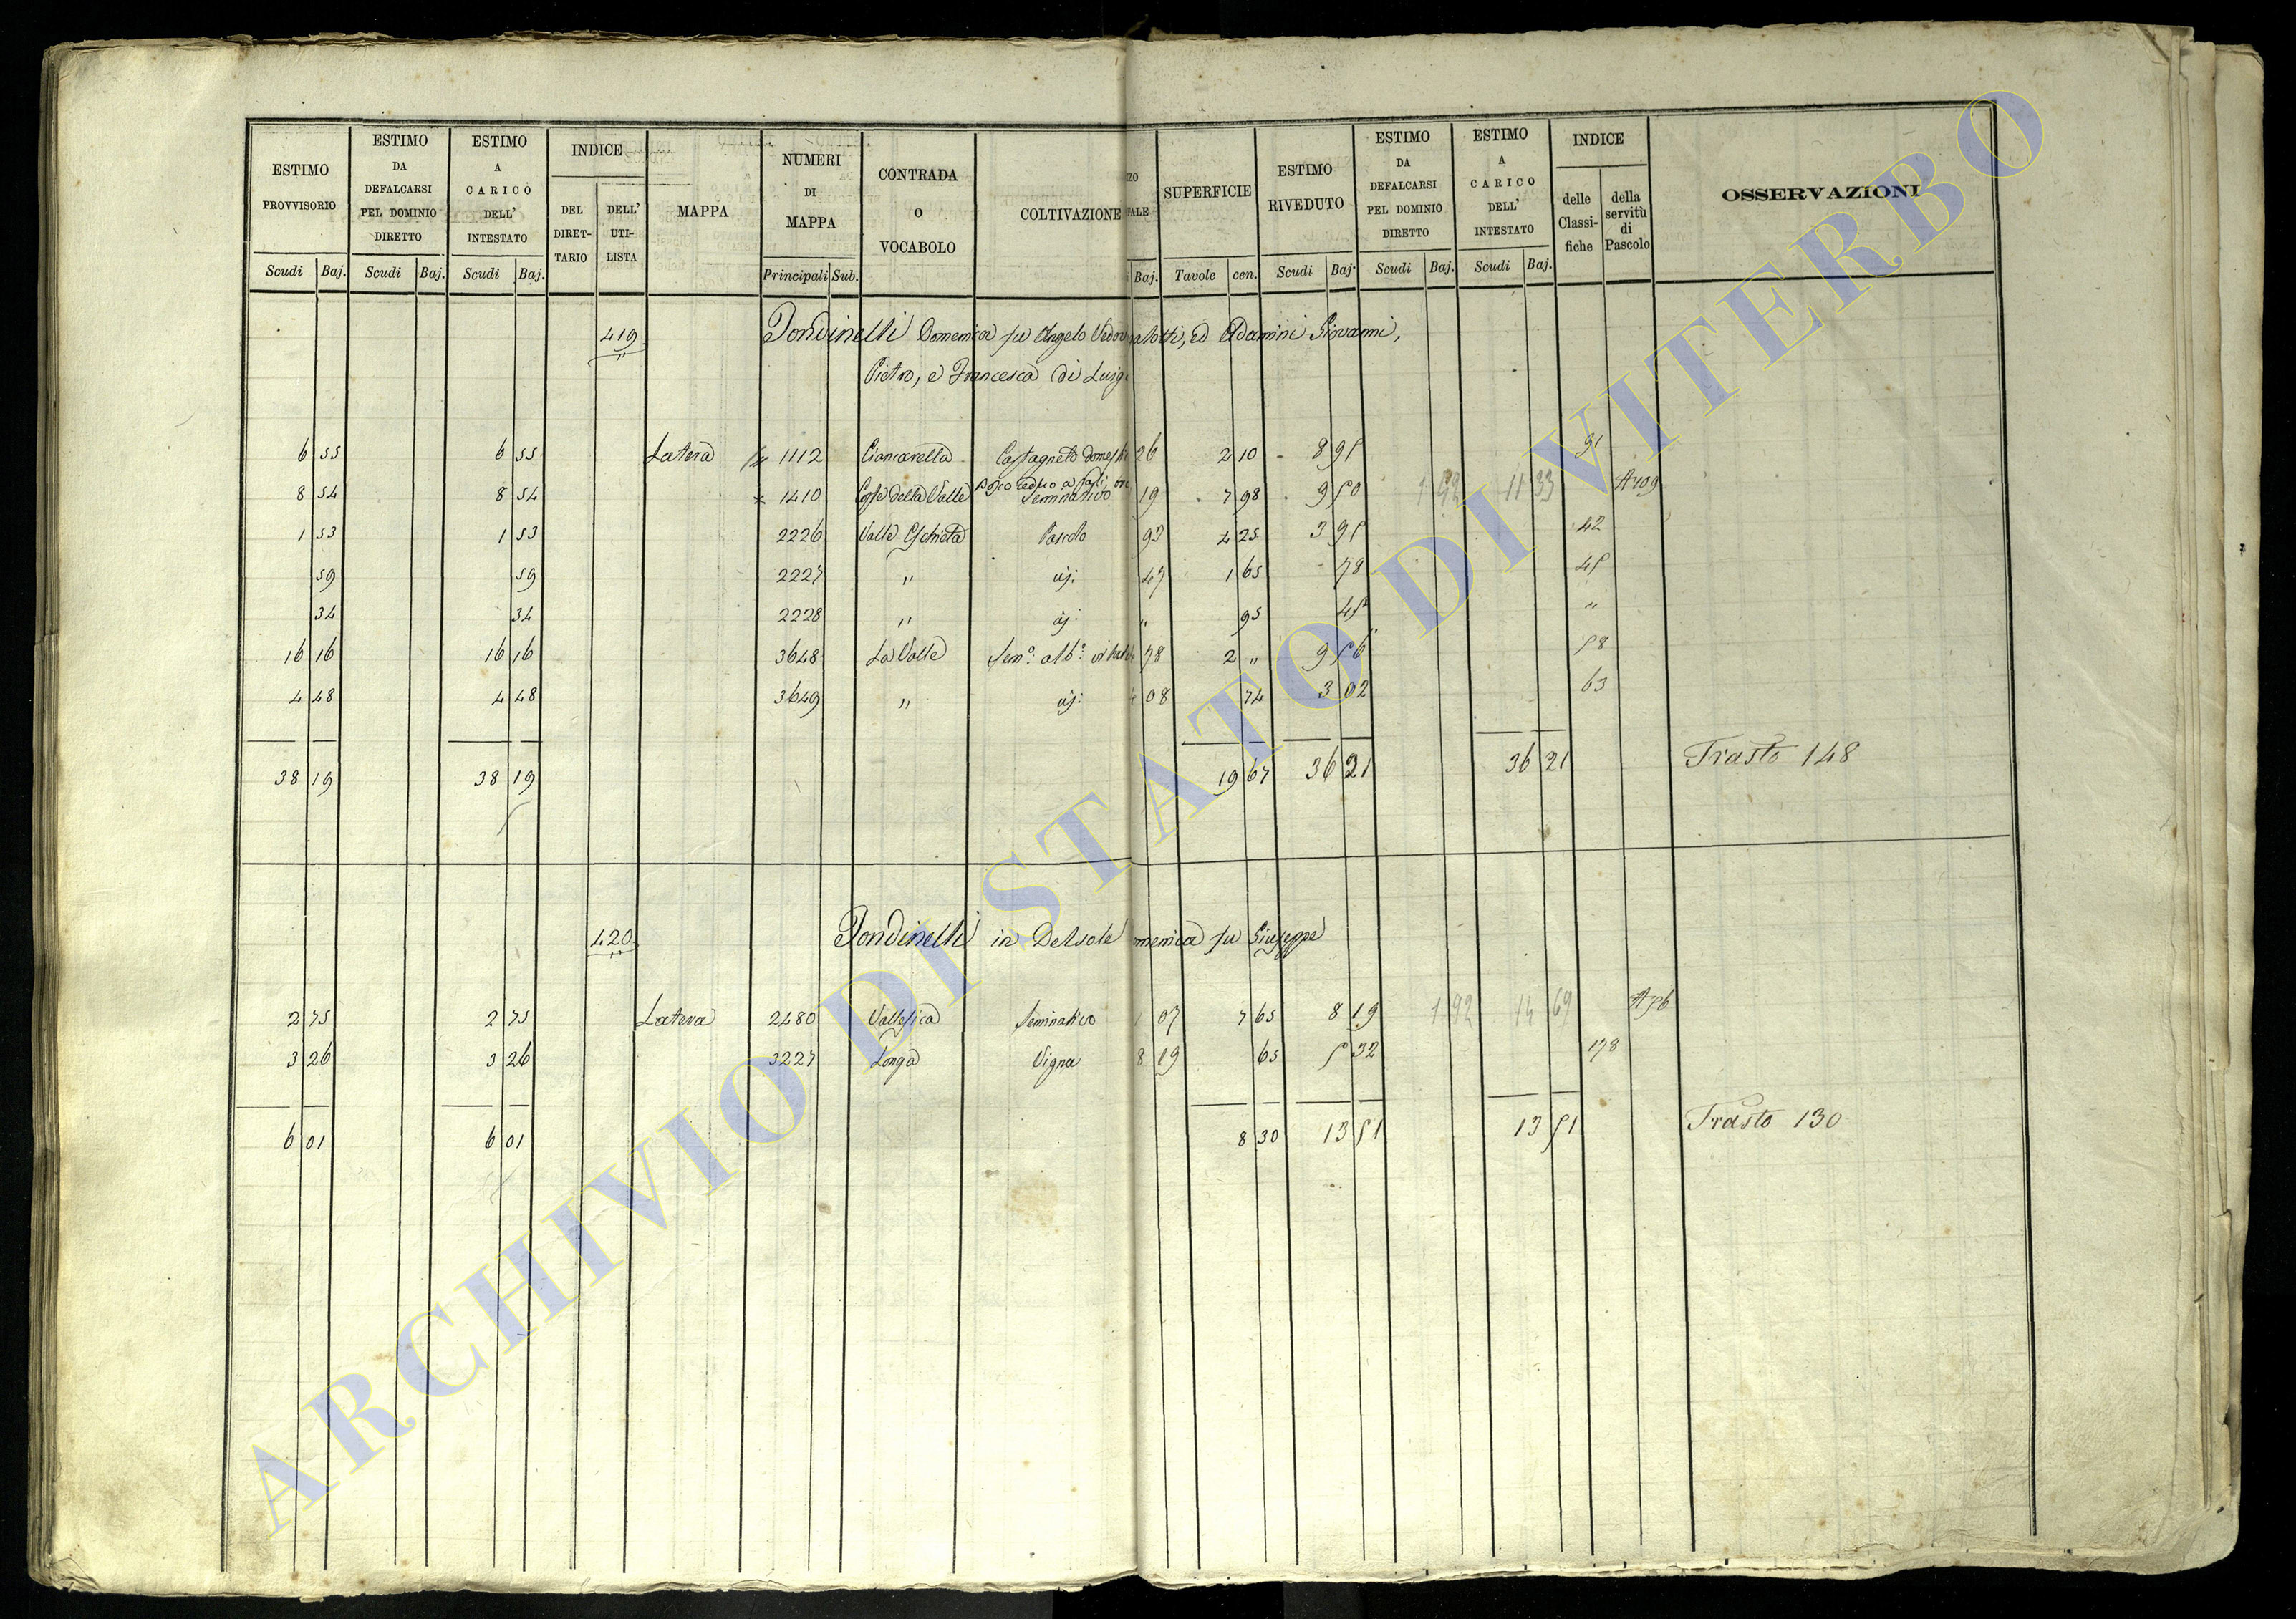 ESTIMO PROVVISORIO
ESTIMO DA DEFALCARSI PEL DOMINIO DIRETTO
ESTIMO A CARICO DELL' INTESTATO
INDICE
DEL DIRET-TARIO
DELL' UTI-LISTA
MAPPA
NUMERI DI MAPPA
CONTRADA O VOCABOLO
COLTIVAZIONE
SUPERFICIE
ESTIMO RIVEDUTO
ESTIMO DA DEFALCARSI PEL DOMINIO DIRETTO
ESTIMO A CARICO DELL' INTESTATO
INDICE
delle Classi-fiche
della servitù di Pascolo
OSSERVAZIONI
Scudi Baj. Scudi Baj. Scudi Baj. Principali Sub. Baj. Tavole cen. Scudi Baj. Scudi Baj. Scudi Baj.
419 Tondinelli Domenica fu Angelo ed Adamini Giovanni,
Pietro, e Francesca di Luigi
6 55 6 55 Latera 1112 Castagneto 26 2 10 8 95 91
8 54 8 54 1410 della Valle Seminativo 19 7 98 9 50 1 92 11 33 A 109
1 53 1 53 2226 Valle Pascolo 93 4 25 3 95 42
59 59 2227 " 47 1 65 78 45
34 34 2228 " " 95 45 "
16 16 16 16 3648 La Valle Sem.º alb.º 78 2 " 9 56 58
4 48 4 48 3649 " 08 74 3 02 63
38 19 38 19 19 67 36 21 36 21 Trasto 148
420 Tondinelli in Delsole fu Giuseppe
2 75 2 75 Latera 2480 Vallesica Seminativo 07 7 65 8 19 1 92 14 69 A 56
3 26 3 26 3227 Longa Vigna 8 19 65 5 32 178
6 01 6 01 8 30 13 51 13 51 Trasto 130
ARCHIVIO DI STATO DI VITERBO